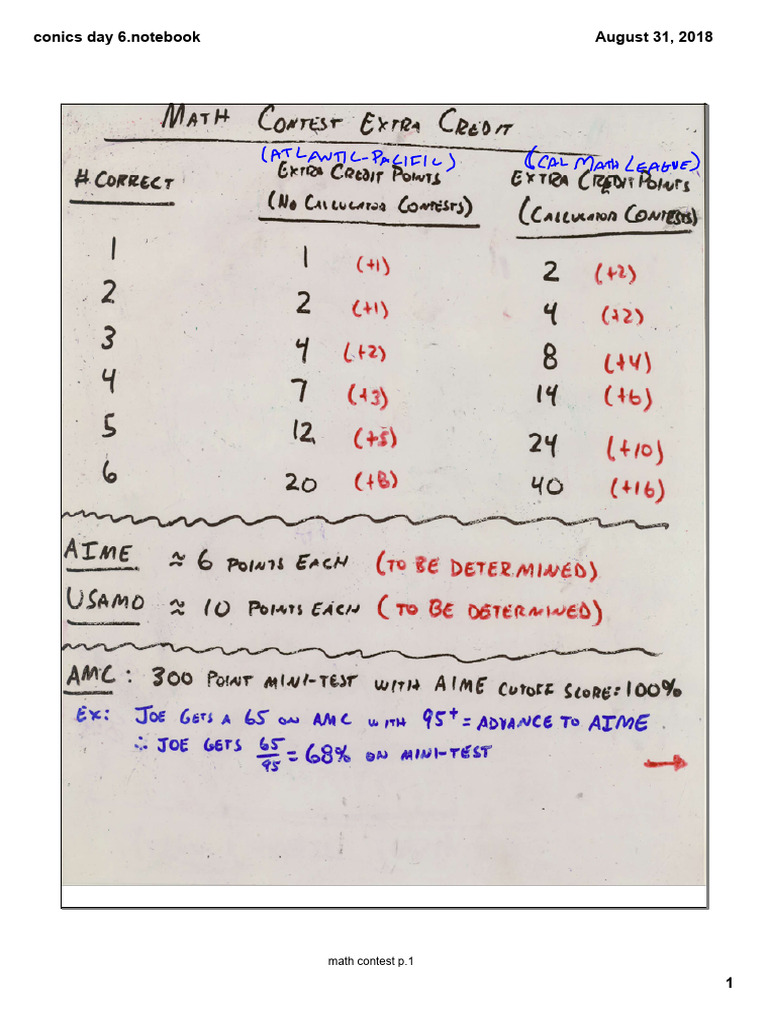 conics day 6.notebook August 31, 2018
MATH CONTEST EXTRA CREDIT
(ATLANTIC-PACIFIC) (CAL MATH LEAGUE)
# CORRECT EXTRA CREDIT POINTS EXTRA CREDIT POINTS
(NO CALCULATOR CONTESTS) (CALCULATOR CONTESTS)
1 1 (+1) 2 (+2)
2 2 (+1) 4 (+2)
3 4 (+2) 8 (+4)
4 7 (+3) 14 (+6)
5 12 (+5) 24 (+10)
6 20 (+8) 40 (+16)
AIME ≈ 6 POINTS EACH (TO BE DETERMINED)
USAMO ≈ 10 POINTS EACH (TO BE DETERMINED)
AMC: 300 POINT MINI-TEST WITH AIME CUTOFF SCORE=100%
EX: JOE GETS A 65 ON AMC WITH 95+ = ADVANCE TO AIME.
∴ JOE GETS 65/95 = 68% ON MINI-TEST
math contest p.1
1